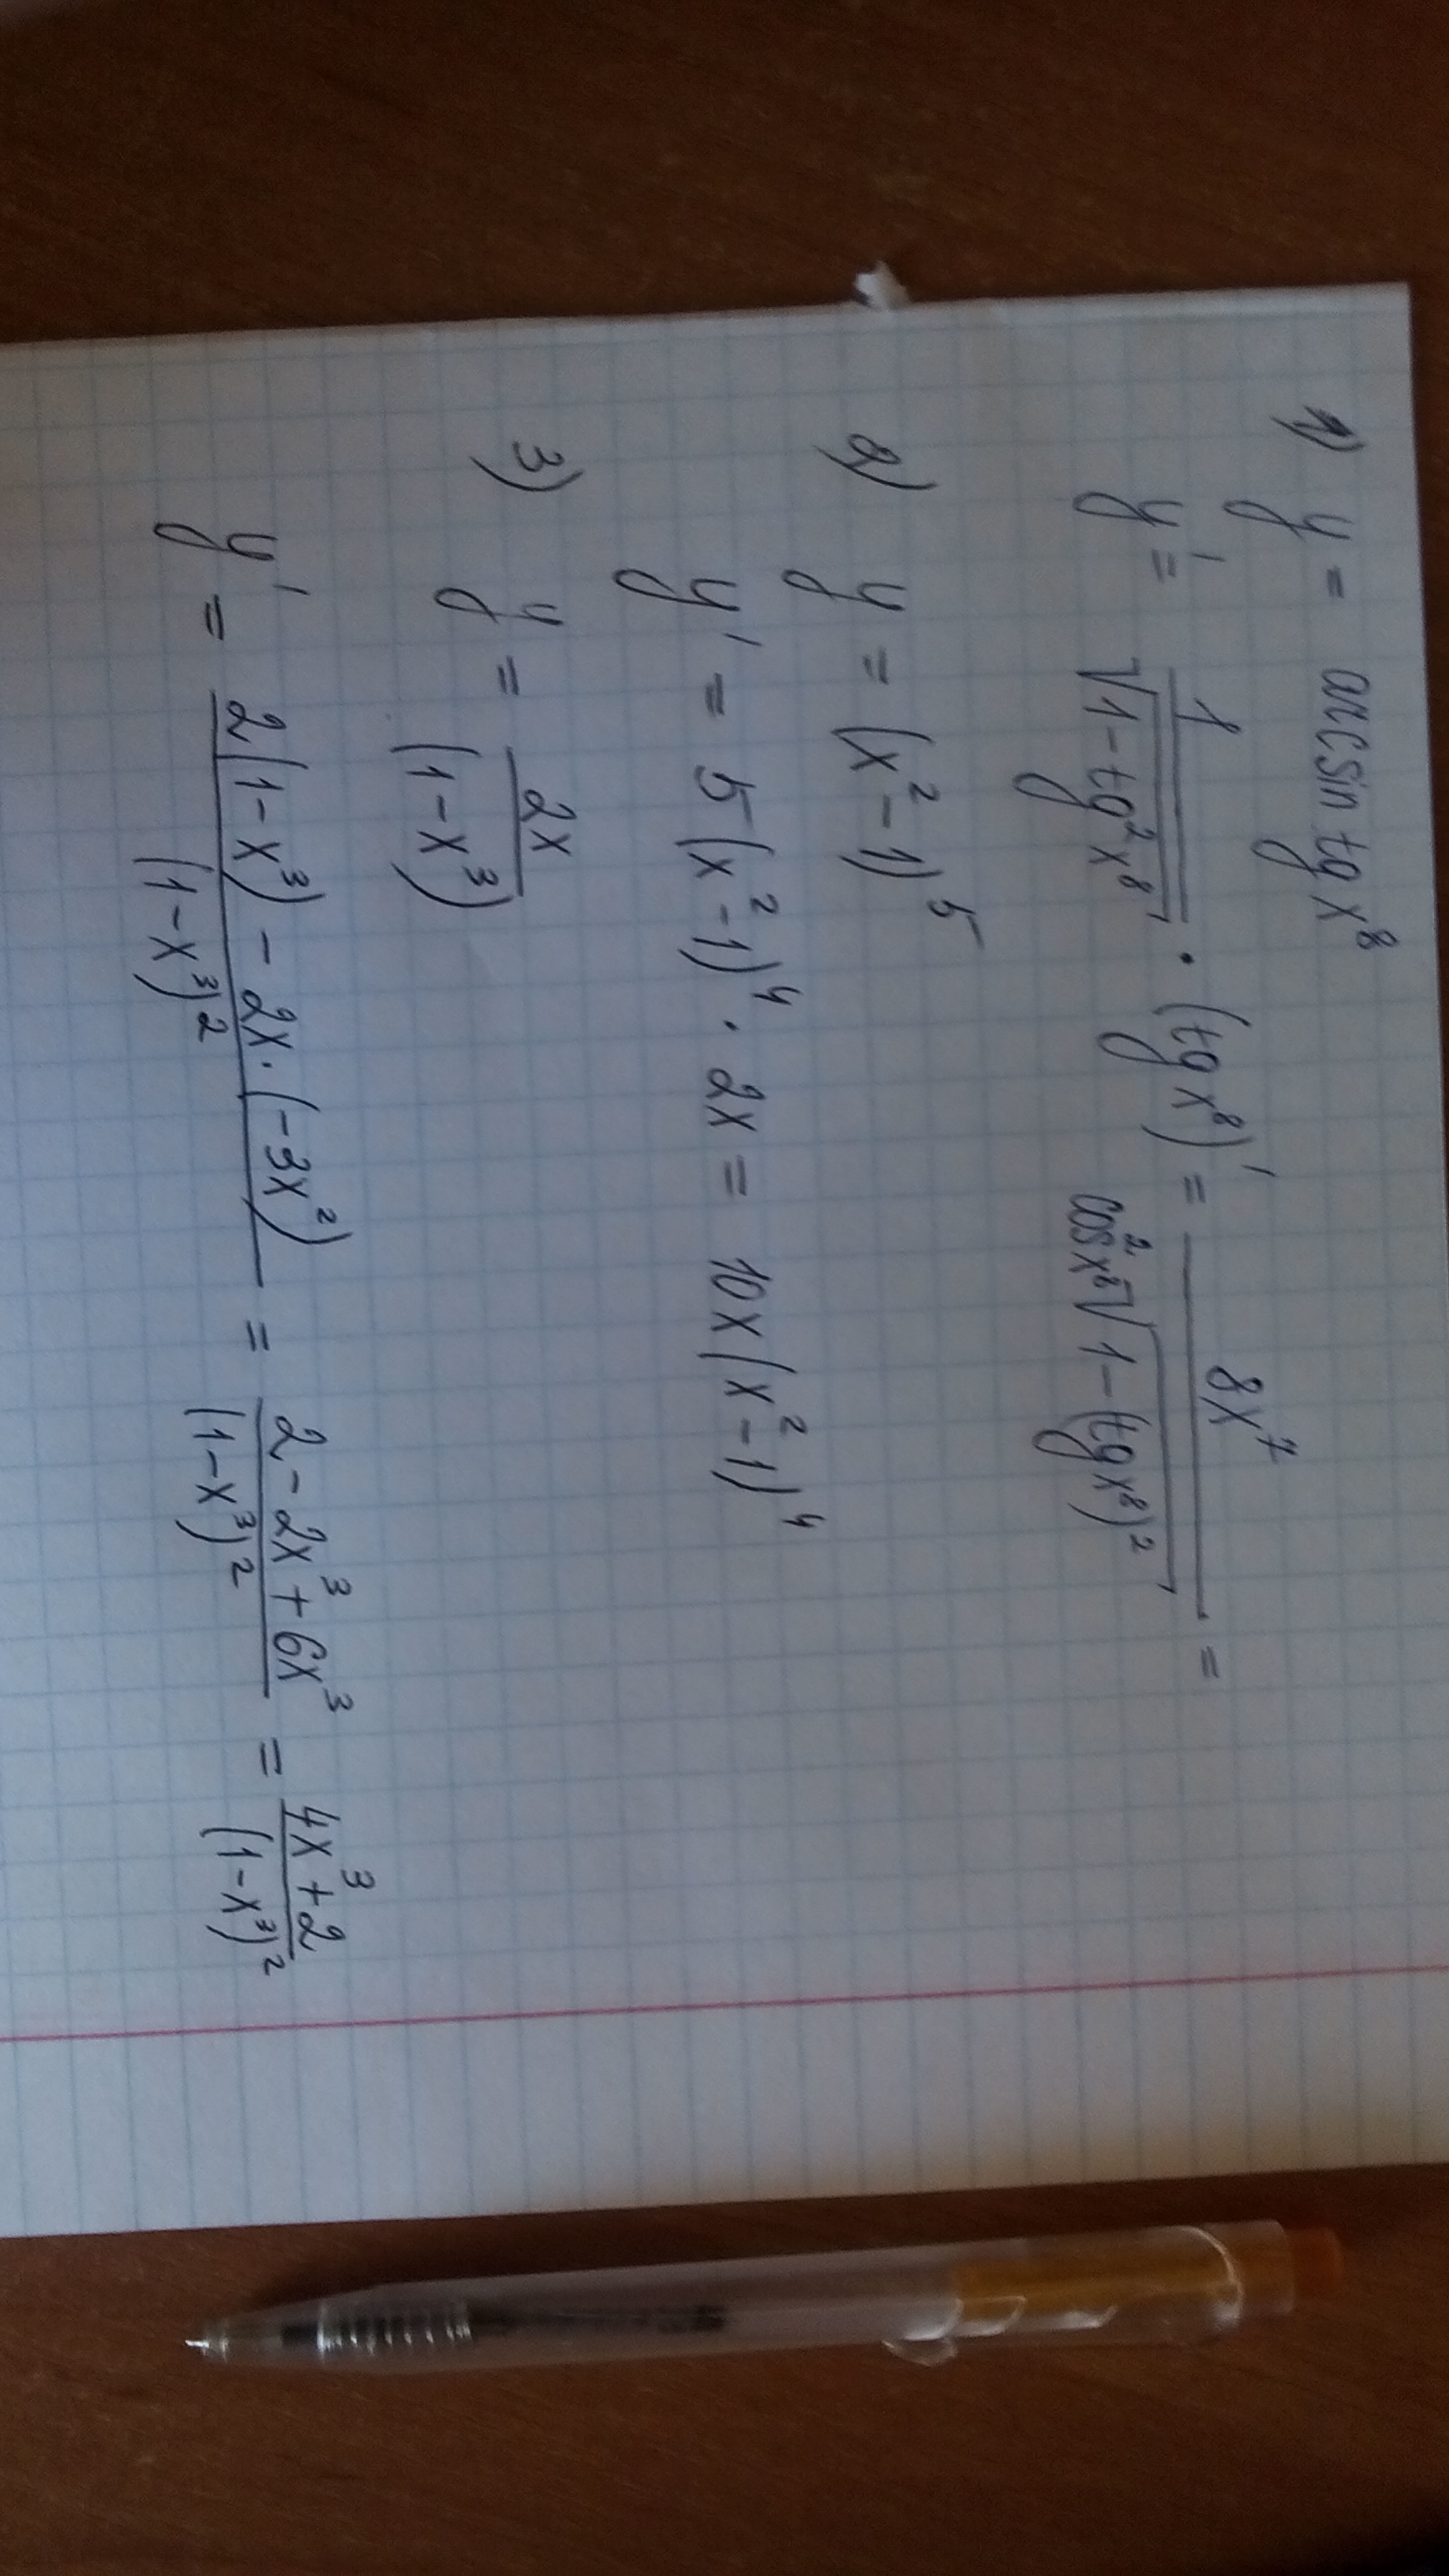 1) y = arcsin tg x⁸
y' = 1/√(1 - tg² x⁸) · (tg x⁸)' = 8x⁷/(cos² x⁸ √(1 - (tg x⁸)²)) =
2) y = (x² - 1)⁵
y' = 5(x² - 1)⁴ · 2x = 10x(x² - 1)⁴
3) y = 2x/(1 - x³)
y' = (2(1 - x³) - 2x · (-3x²))/(1 - x³)² = (2 - 2x³ + 6x³)/(1 - x³)² = (4x³ + 2)/(1 - x³)²